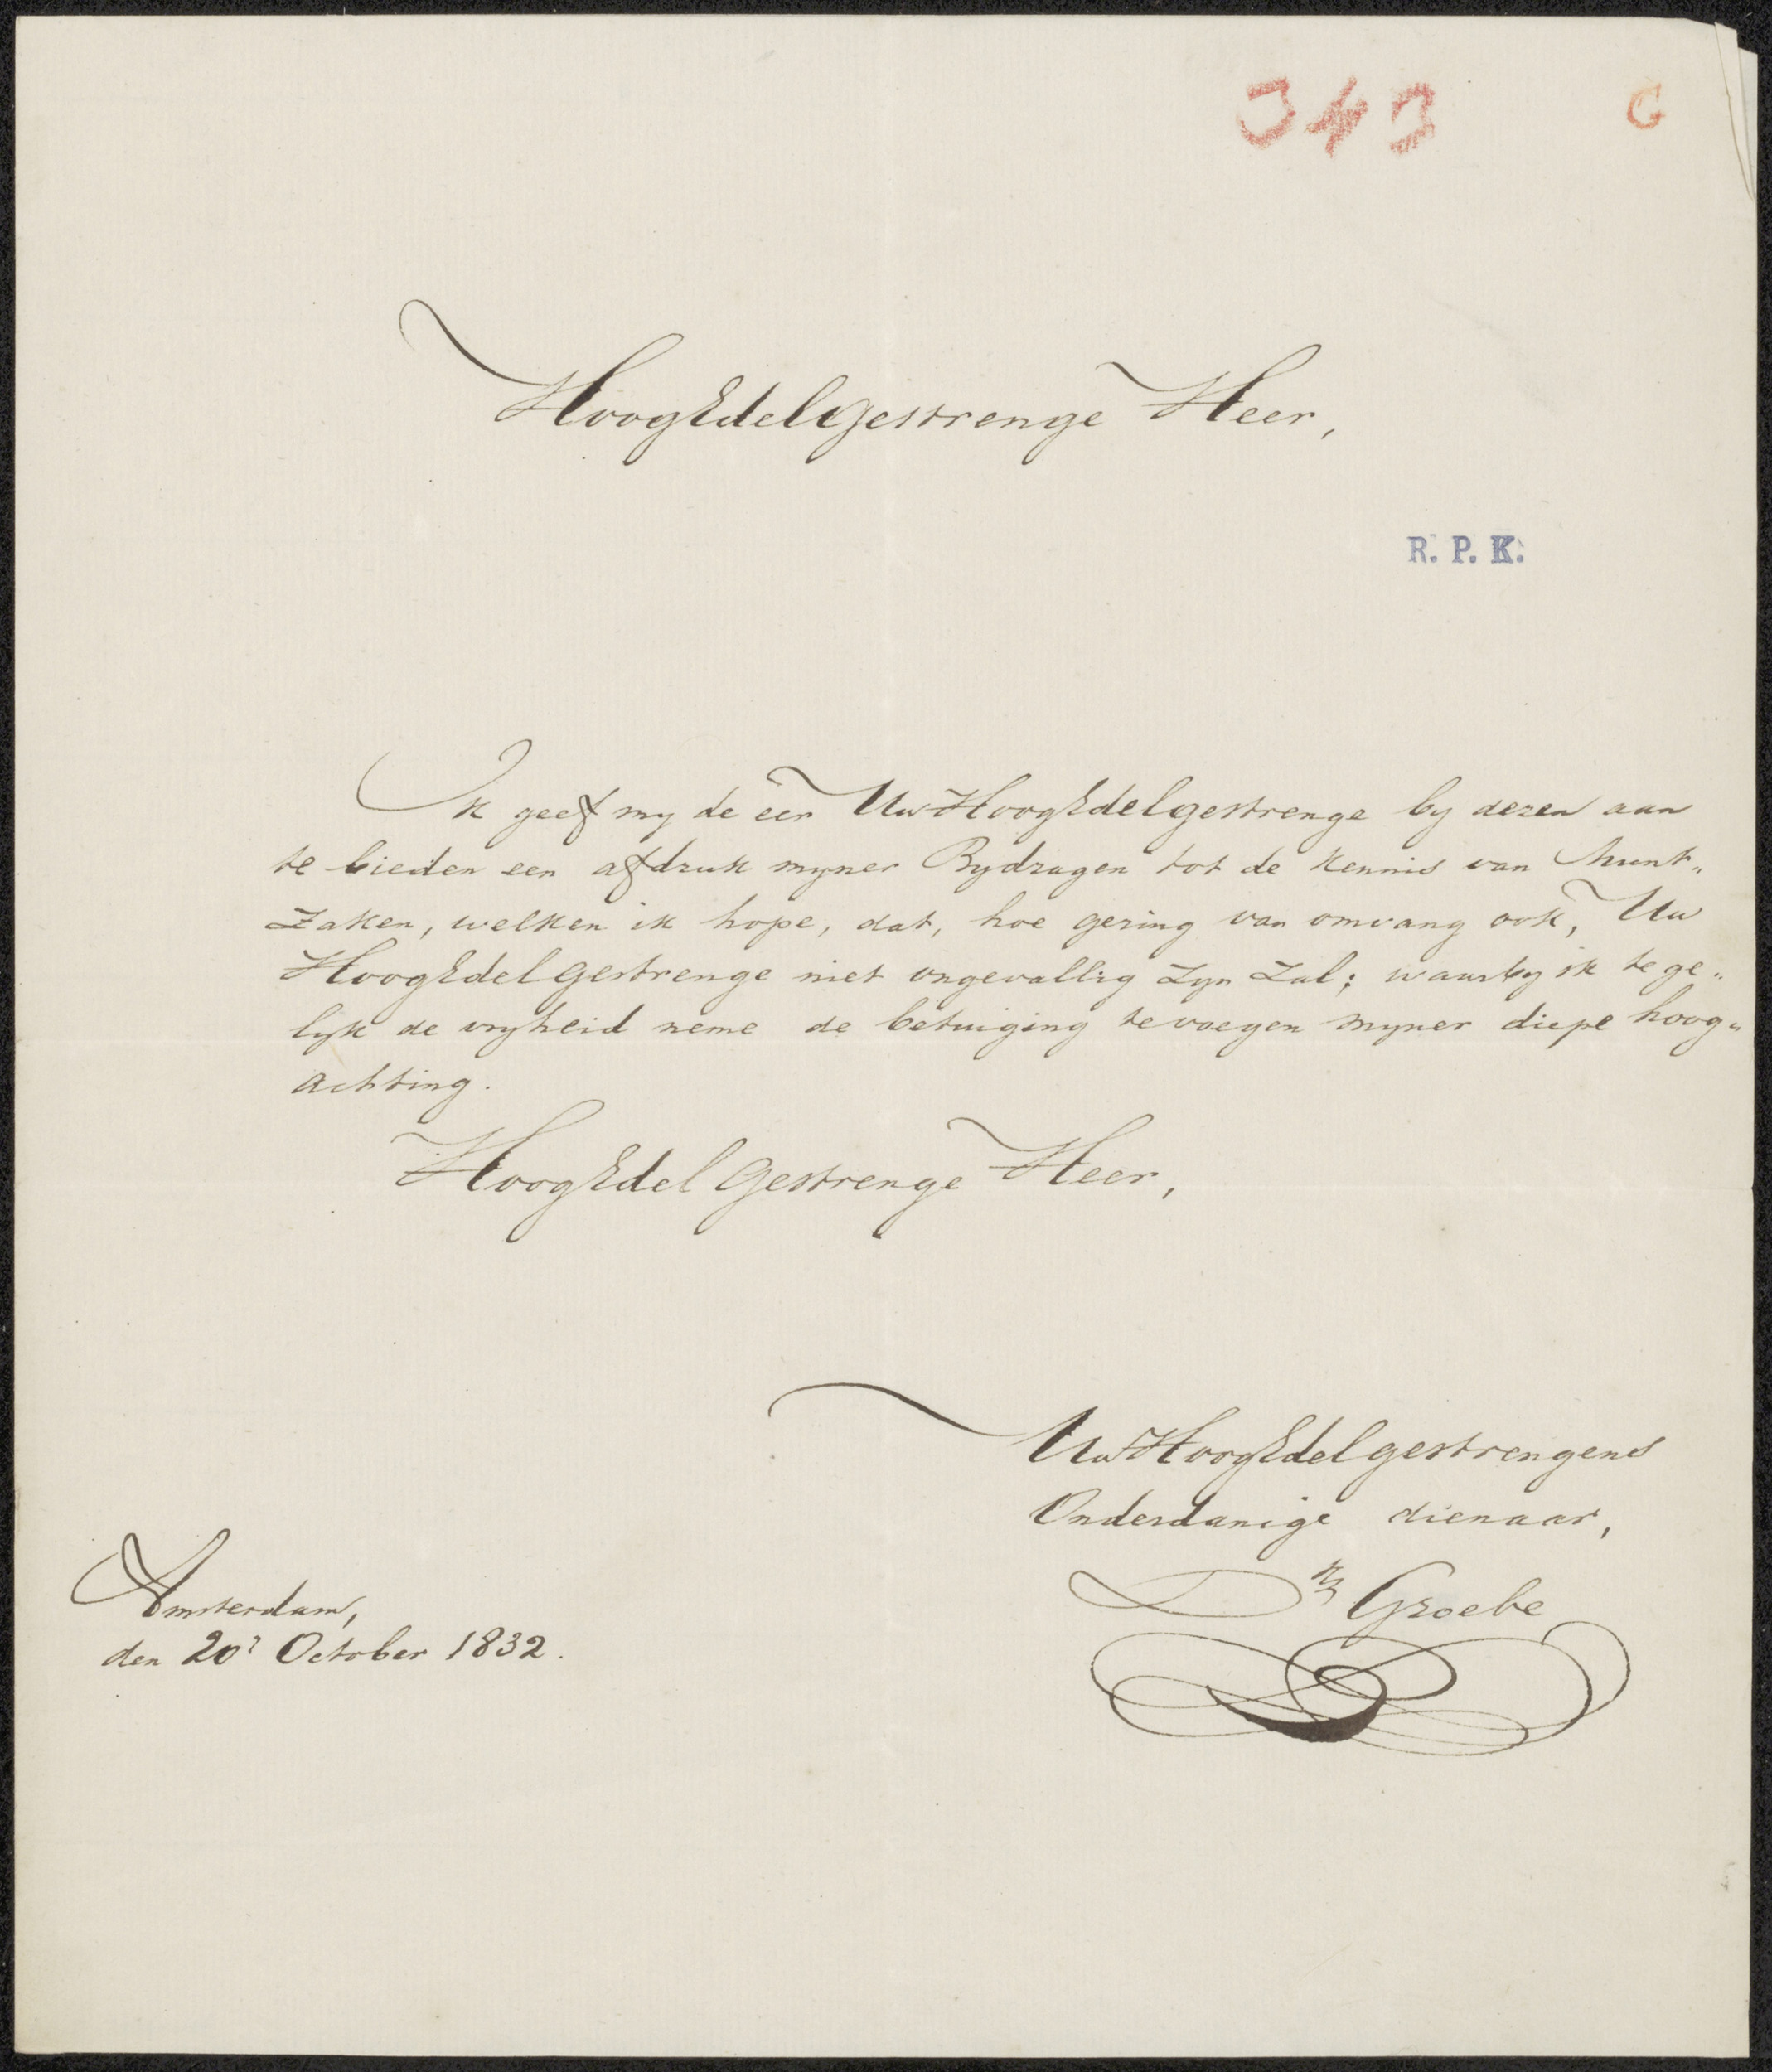 343 G
HoogEdelGestrenge Heer,
R. P. K.
Ik geef my de eer UwHoogEdelgestrenge by dezen aan
te bieden een afdruk myner Bydragen tot de kennis van Munt„
Zaken, welken ik hope, dat, hoe gering van omvang ook, Uw
HoogEdelGestrenge niet ongevallig Zyn Zal; waarby ik te ge„
lyk de vryheid neme de betuiging te voegen myner diepe hoog„
achting.
HoogEdelGestrenge Heer,
UwHoogEdelgestrengens
Onderdanige dienaar,
Groebe
Amsterdam,
den 20 October 1832.